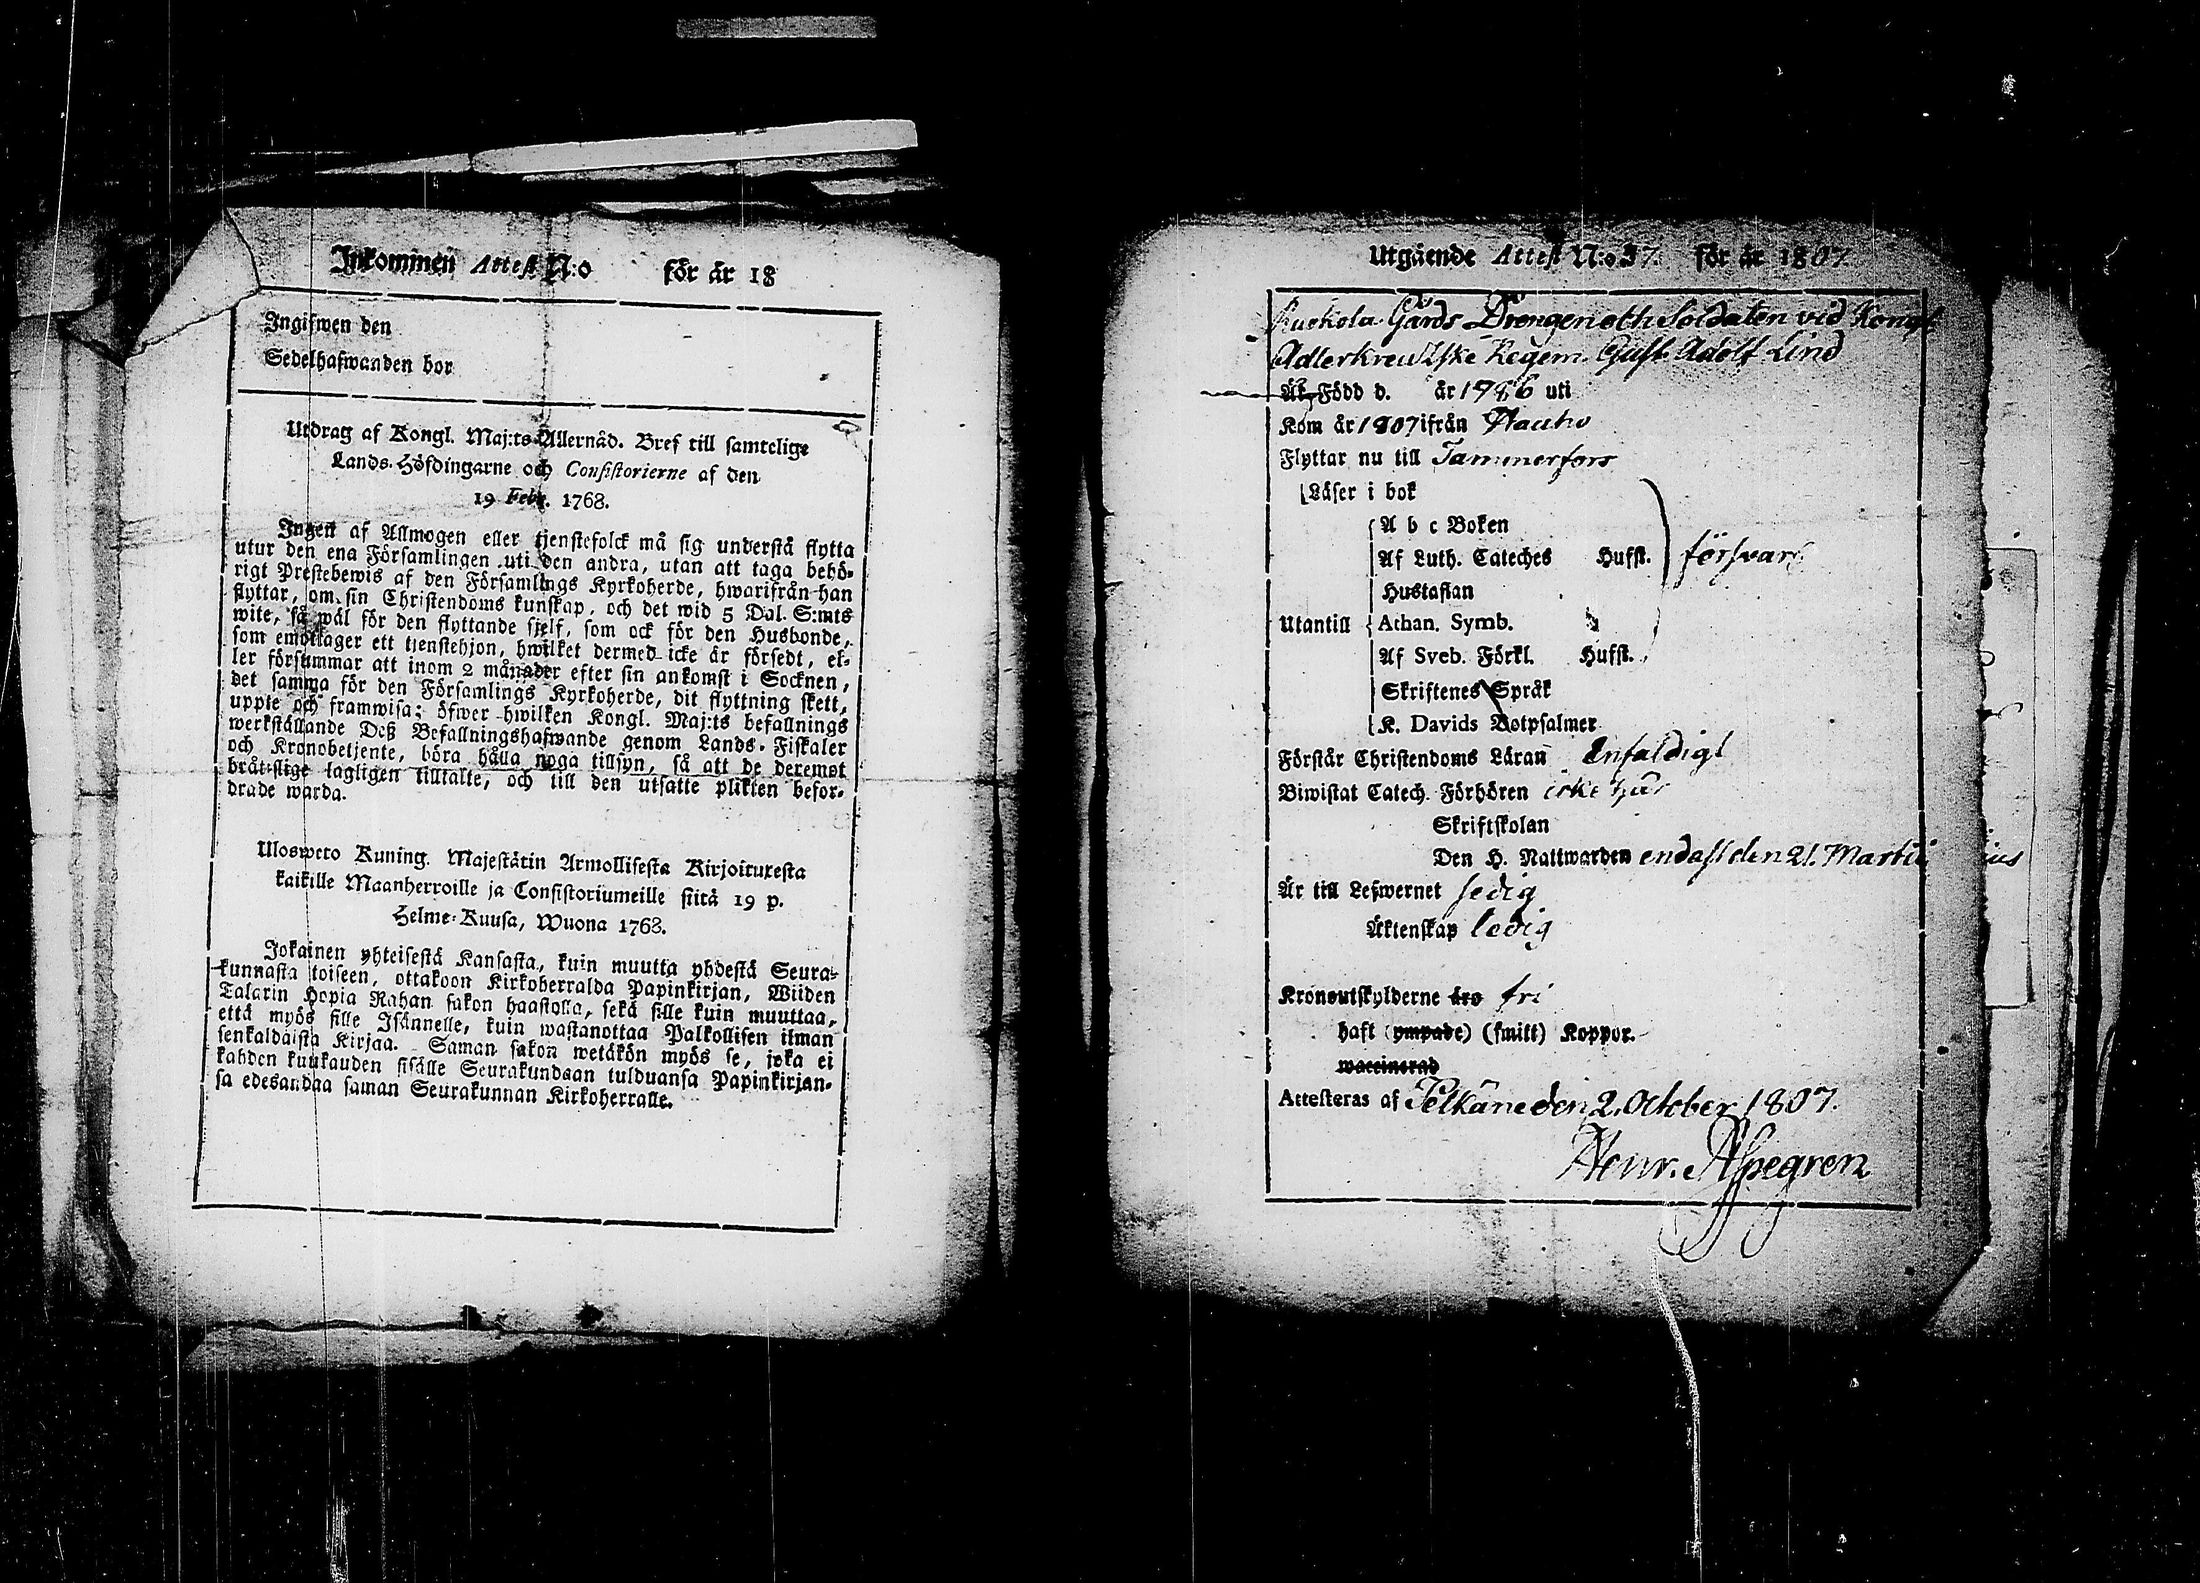 Inkommen Attest N:o för år 18
Ingifwen den
Sedelhafwanden bor
Utdrag af Kongl. Maj:ts Allernåd. Bref till samtelige
Lands-Höfdingarne och Consistorierne af den
19 Febr. 1768.
Ingen af Allmogen eller tjenstefolck må sig understå flytta
utur den ena Församlingen uti den andra, utan att taga behö-
rigt Prestebewis af den Församlings Kyrkoherde, hwarifrån han
flyttar, om sin Christendoms kunskap, och det wid 5 Dal. S:mts
wite, så wäl för den flyttande sjelf, som ock för den Husbonde,
som emottager ett tjenstehjon, hwilket dermed icke är försedt, el-
ler försummar att inom 2 månader efter sin ankomst i Socknen,
det samma för den Församlings Kyrkoherde, dit flyttning skett,
uppte och framwisa; öfwer hwilken Kongl. Maj:ts befallnings
werkställande Deß Befallningshafwande genom Lands-Fiskaler
och Kronobetjente, böra hålla noga tillsyn, så att de deremot
bråttslige lagligen tilltalte, och till den utsatte plikten befor-
drade warda.
Ulosweto Kuning. Majestätin Armollisesta Kirjoituxesta
kaikille Maanherroille ja Consistoriumeille siitä 19 p.
Helme-Kuusa, Wuona 1768.
Jokainen yhteisestä Kansasta, kuin muutta yhdestä Seura-
kunnasta toiseen, ottakoon Kirkoherralda Papinkirjan, Wiiden
Talarin Hopia Rahan sakon haastolla, sekä sille kuin muuttaa,
että myös sille Isännelle, kuin wastanottaa Palkollisen ilman
senkaldaista Kirjaa. Saman sakon wetäkön myös se, joka ei
kahden kuukauden sisälle Seurakundaan tulduansa Papinkirjan-
sa edesandaa saman Seurakunnan Kirkoherralle.
Utgående Attest N:o 37. för år 1807.
Gårds Drengen och Soldaten vid Kongl
Adlerkreutzske Regem. Gust. Adolf Lind
Är Född d. år 1786 uti
Kom år 1807 ifrån Hauho
Flyttar nu till Tammerfors
Läser i bok
A b c Boken
Af Luth. Cateches Hufst. försvarl
Hustaflan
Utantill Athan. Symb.
Af Sveb. Förkl. Hufst.
Skriftenes Språk
K. Davids Botpsalmer
Förstår Christendoms Läran Enfaldigt
Biwistat Catech. Förhören icke här
Skriftskolan
Den H. Nattwarden endast den 21. Martii
Är till Lefwernet sedig
Äktenskap ledig
Kronoutskylderne äro fri
haft (ympade) (smitt) Koppor.
waccinerad
Attesteras af Pelkäne den 2. October 1807.
Henr. Aspegren